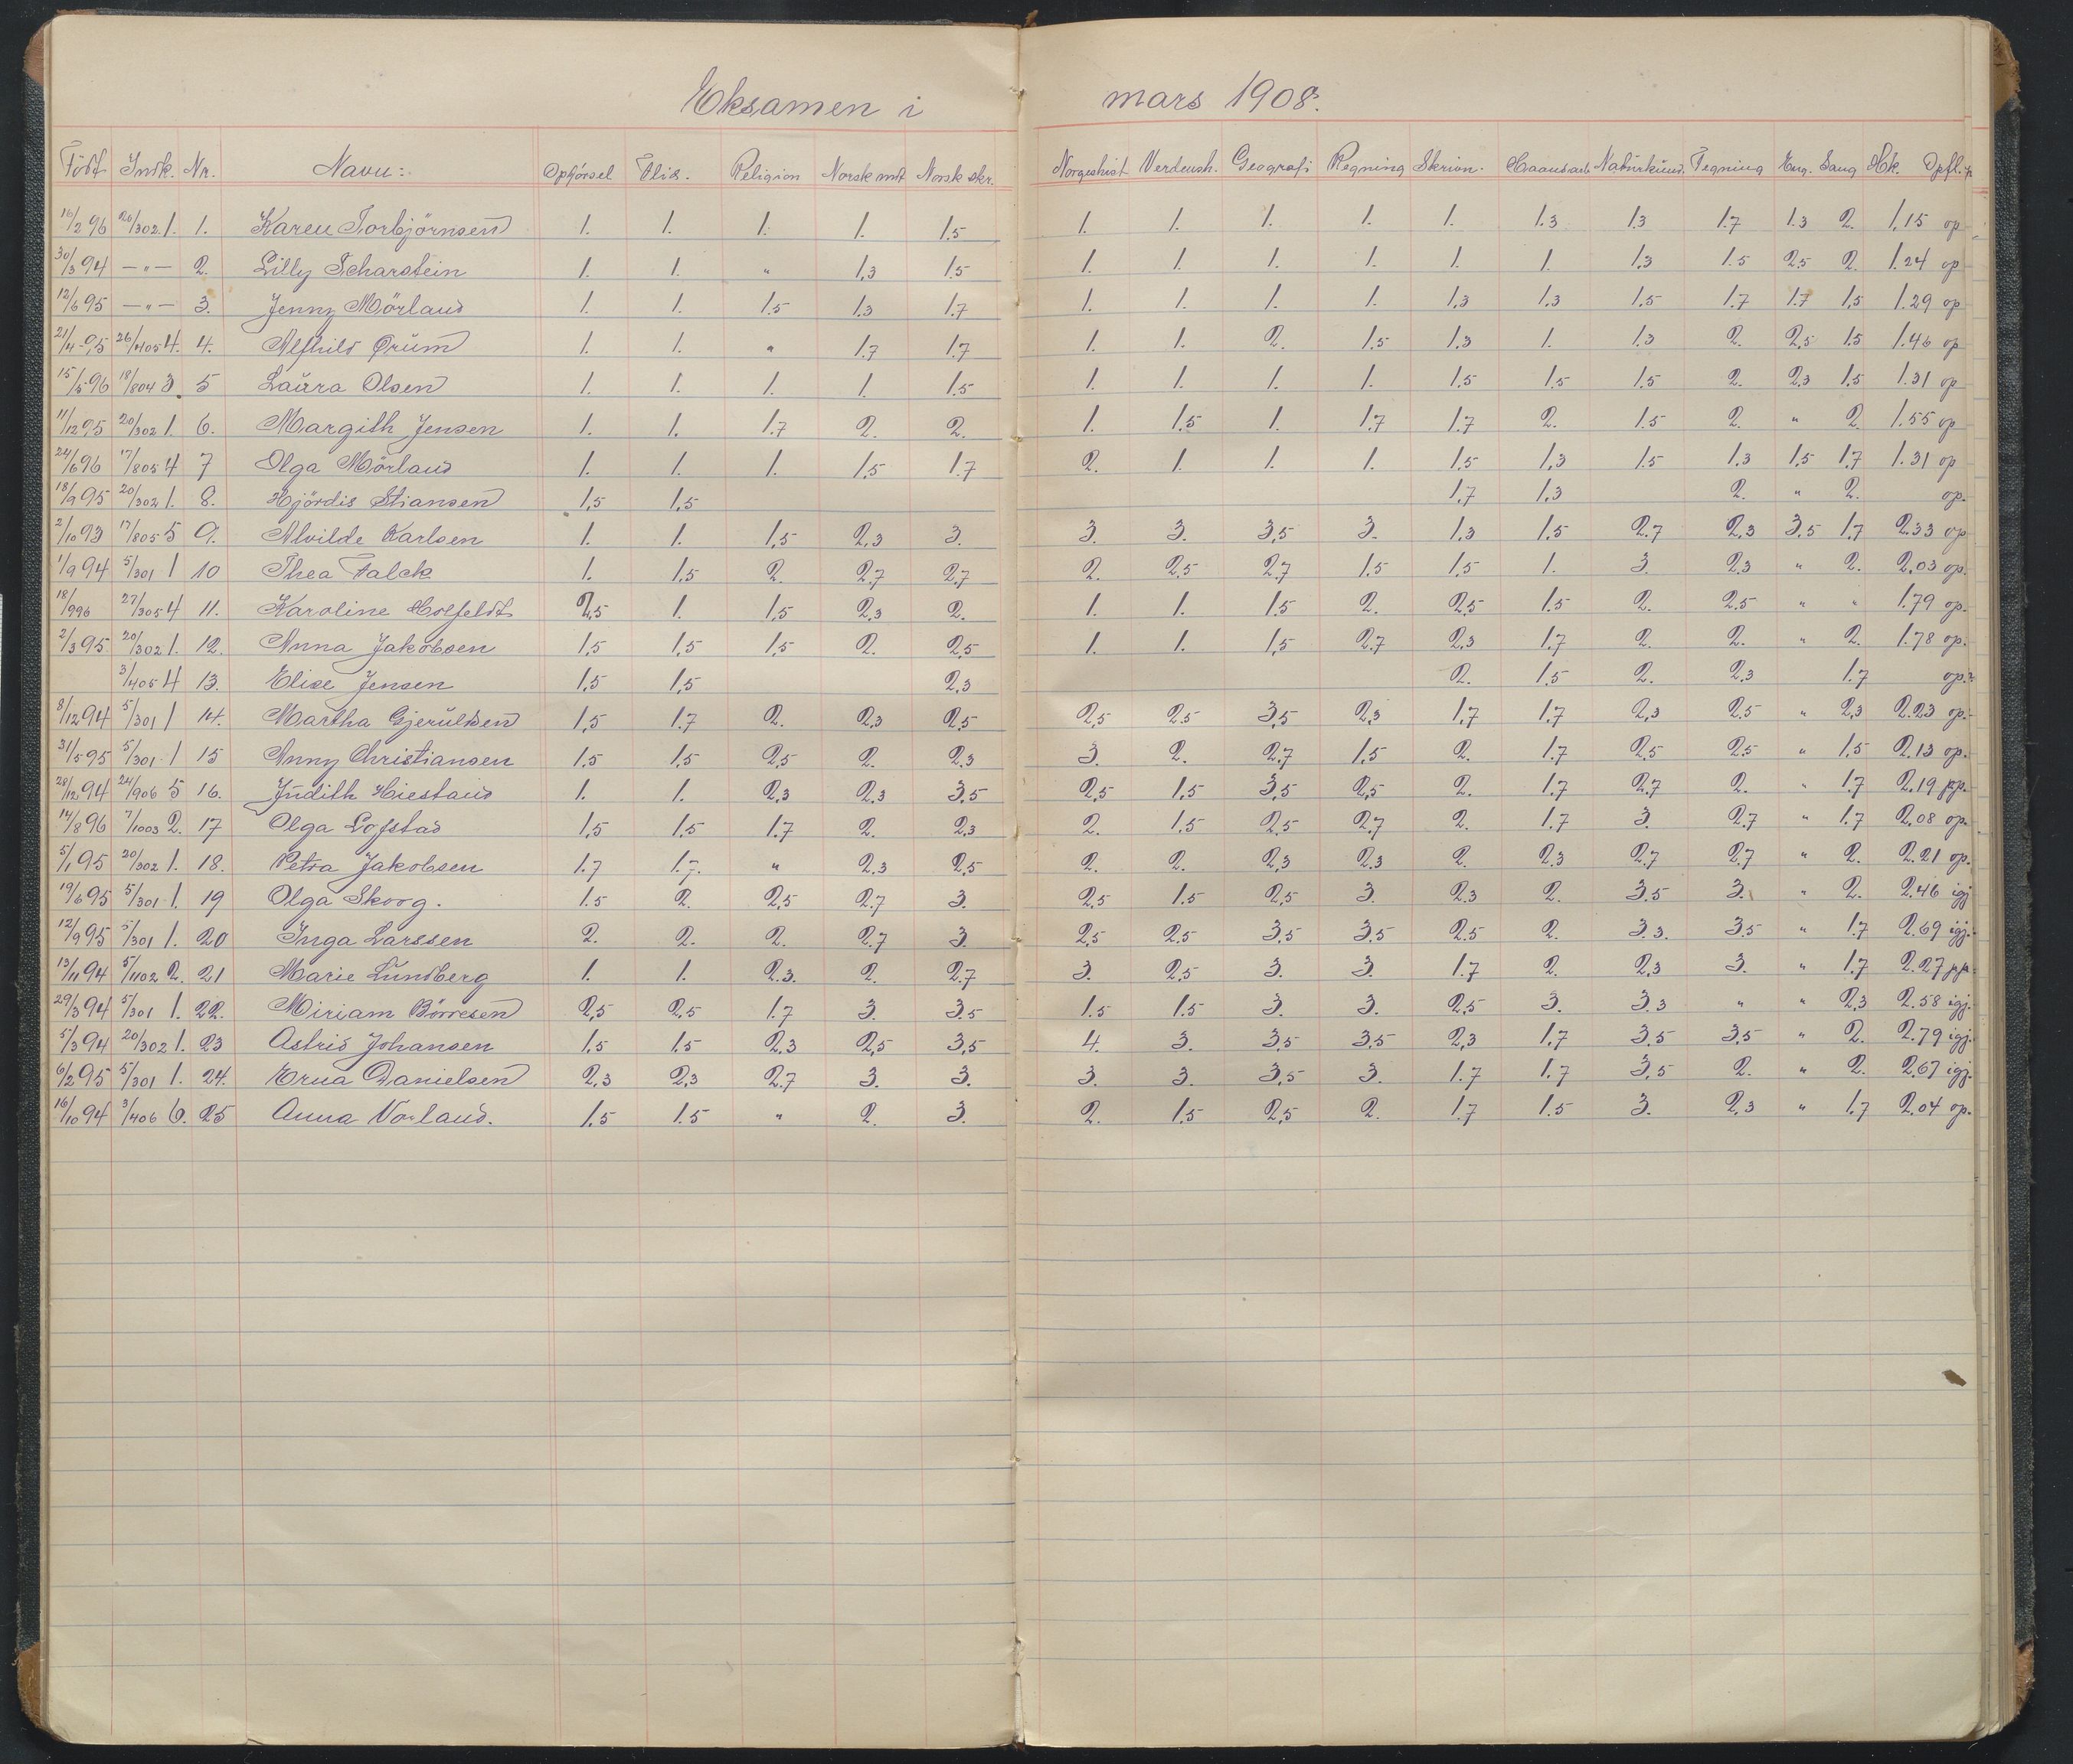 Eksamen i mars 1908.
Född Indk. Nr. Navn: Opförsel Flid. Religion Norsk mdt Norsk skr. Norgeshist. Verdensh. Geografi Regning Skrivn. Haandarb. Naturkund. Tegning Eng. Sang Hk. Opfl.
16/2 96 20/302 1. 1. Karen Torbjörnsen 1. 1. 1. 1. 1.5 1. 1. 1. 1. 1. 1.3 1.3 1.7 1.3 2. 1,15 op
30/3 94 —"— 2. Lilly Scharstein 1. 1. " 1,3 1.5 1. 1. 1. 1. 1. 1. 1,3 1.5 2,5 2. 1.24 op
12/6 95 —"— 3. Jenny Mörland 1. 1. 1.5 1.3 1.7 1. 1. 1. 1. 1,3 1,3 1,5 1.7 1.7 1,5 1.29 op
21/4 95 26/405 4. 4. Alfhild Ørüm 1. 1. " 1.7 1.7 1. 1. 2. 1.5 1.3 1. 1.3 2. 2,5 1.5 1.46 op
15/5 96 18/804 3 5 Laüra Olsen 1. 1. 1. 1. 1.5 1. 1. 1. 1. 1.5 1.5 1.5 2. 2,3 1,5 1.31 op
11/12 95 20/302 1. 6. Margith Jensen 1. 1. 1.7 2. 2. 1. 1.5 1. 1.7 1.7 2. 1.5 2. " 2. 1.55 op
24/6 96 17/805 4 7 Olga Mörland 1. 1. 1. 1,5 1.7 2. 1. 1. 1. 1.5 1,3 1.5 1.3 1,5 1.7 1.31 op
18/9 95 20/302 1. 8. Hjördis Stiansen 1,5 1,5 1,7 1,3 2. " 2. op.
2/10 93 17/805 5 9. Alvilde Karlsen 1. 1. 1,5 2,3 3. 3. 3. 3,5 3. 1.3 1,5 2.7 2,3 3.5 1.7 2.33 op
1/9 94 5/301 1 10 Thea Falck 1. 1,5 2. 2.7 2,7 2. 2,5 2.7 1.5 1.5 1. 3. 2.3 " 2. 2,03 op.
18/9 96 27/305 4 11. Karoline Holfeldt 2,5 1. 1,5 2,3 2. 1. 1. 1.5 2. 2,5 1.5 2. 2.5 " " 1.79 op.
2/3 95 20/302 1. 12. Anna Jakobsen 1,5 1,5 1,5 2. 2,5 1. 1. 1,5 2.7 2,3 1.7 2. 2. " 2. 1.78 op.
3/405 4 13. Elise Jensen 1,5 1,5 2,3 2. 1.5 2. 2.3 1.7 op.
8/12 94 5/301 1 14. Martha Gjerülsen 1,5 1.7 2. 2,3 2,5 2,5 2.5 3,5 2,3 1,7 1.7 2,3 2.5 " 2,3 2.23 op.
31/5 95 5/301 1 15 Anny Christiansen 1.5 1,5 2,5 2. 2.3 3. 2. 2,7 1,5 2. 1.7 2,5 2.5 " 1.5 2.13 op.
28/12 94 24/906 5 16. Jüdith Hiestand 1. 1. 2,3 2,3 3,5 2,5 1,5 3,5 2,5 2. 1.7 2.7 2. " 1.7 2.19
14/8 96 7/1003 2. 17 Olga Lofstad 1,5 1.5 1.7 2. 2,3 2. 1.5 2,5 2,7 2. 1.7 3. 2.7 " 1.7 2,08 op.
5/1 95 20/302 1. 18. Petra Jakobsen 1.7 1.7. " 2.3 2,5 2. 2. 2,3 2.3 2. 2.3 2.7 2.7 " 2. 2.21 op.
19/6 95 5/301 1. 19 Olga Skoog. 1.5 2. 2,5 2.7 3. 2,5 1.5 2,5 3. 2.3 2. 3.5 3. " 2. 2.46 igj
12/9 95 5/301 1. 20 Inga Larssen 2. 2. 2. 2.7 3. 2,5 2.5 3,5 3.5 2.5 2. 3.3. 3.5 " 1.7 2.69 igj.
13/11 94 5/1102 2. 21 Marie Lündberg 1. 1. 2.3. 2. 2.7 3. 2,5 3. 3. 1.7 2. 2,3 3. " 1.7 2.27
29/3 94 5/301 1. 22. Miriam Börresen 2,5 2,5 1.7 3. 3.5 1.5 1.5 3. 3. 2,5 3. 3.3 " " 2,3 2.58 igj.
5/3 94 20/302 1. 23 Astrid Johansen 1,5 1.5 2,3 2,5 3,5 4. 3. 3,5 3.5 2,3 1.7 3.5 3,5 " 2. 2.79 igj.
6/2 95 5/301 1. 24. Erna Danielsen 2,3 2,3 2.7 3. 3. 3. 3. 3,5 3. 1.7 1.7 3,5 2. " 2. 2.67 igj.
16/10 94 3/406 6. 25 Anna Norland. 1,5 1.5 " 2. 3. 2. 1,5 2,5 2. 1.7 1.5 3. 2,3 " 1.7 2.04 op.